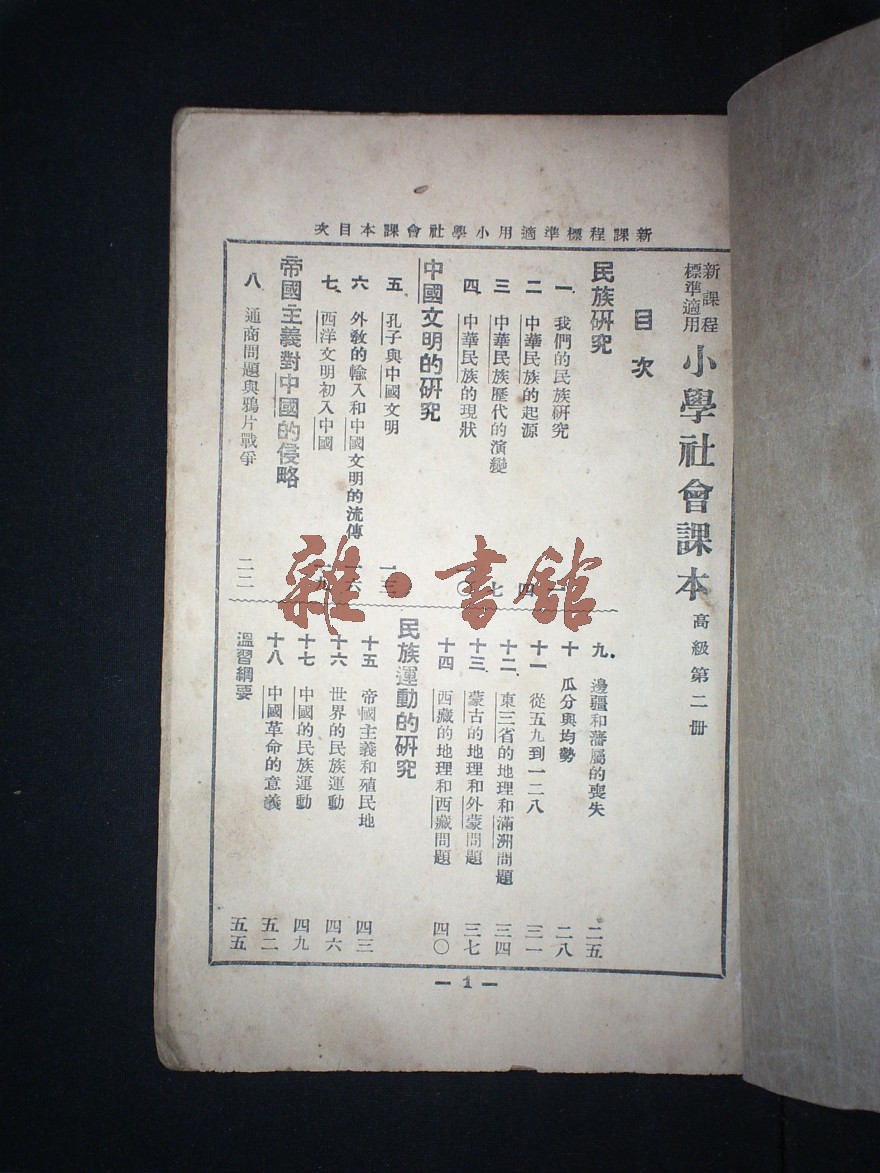 新課程標準適用小學社會課本目次
新課程標準適用 小學社會課本 高級第二冊
目次
民族研究
一 我們的民族研究 一
二 中華民族的起源 四
三 中華民族歷代的演變 七
四 中華民族的現狀 〇
中國文明的研究
五 孔子與中國文明 一三
六 外教的輸入和中國文明的流傳 一六
七 西洋文明初入中國
帝國主義對中國的侵略
八 通商問題與鴉片戰爭 二二
九 邊疆和藩屬的喪失 二五
十 瓜分與均勢 二八
十一 從五九到一二八 三一
十二 東三省的地理和滿洲問題 三四
十三 蒙古的地理和外蒙問題 三七
十四 西藏的地理和西藏問題 四〇
民族運動的研究
十五 帝國主義和殖民地 四三
十六 世界的民族運動 四六
十七 中國的民族運動 四九
十八 中國革命的意義 五二
溫習綱要 五五
1
雜·書館